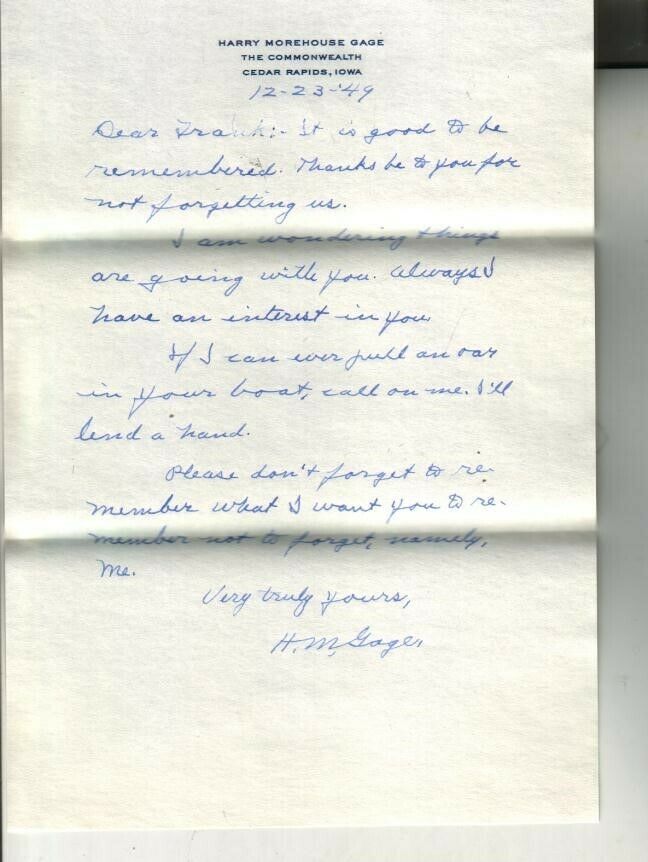 HARRY MOREHOUSE GAGE
THE COMMONWEALTH
CEDAR RAPIDS, IOWA
12-23-'49
Dear Frank:- It is good to be
remembered. Thanks be to you for
not forgetting us.
I am wondering things
are going with you. Always I
have an interest in you
If I can ever pull an oar
in your boat, call on me. I'll
lend a hand.
Please don't forget to re-
member what I want you to re-
member not to forget, namely,
Me.
Very truly yours,
H. M. Gage